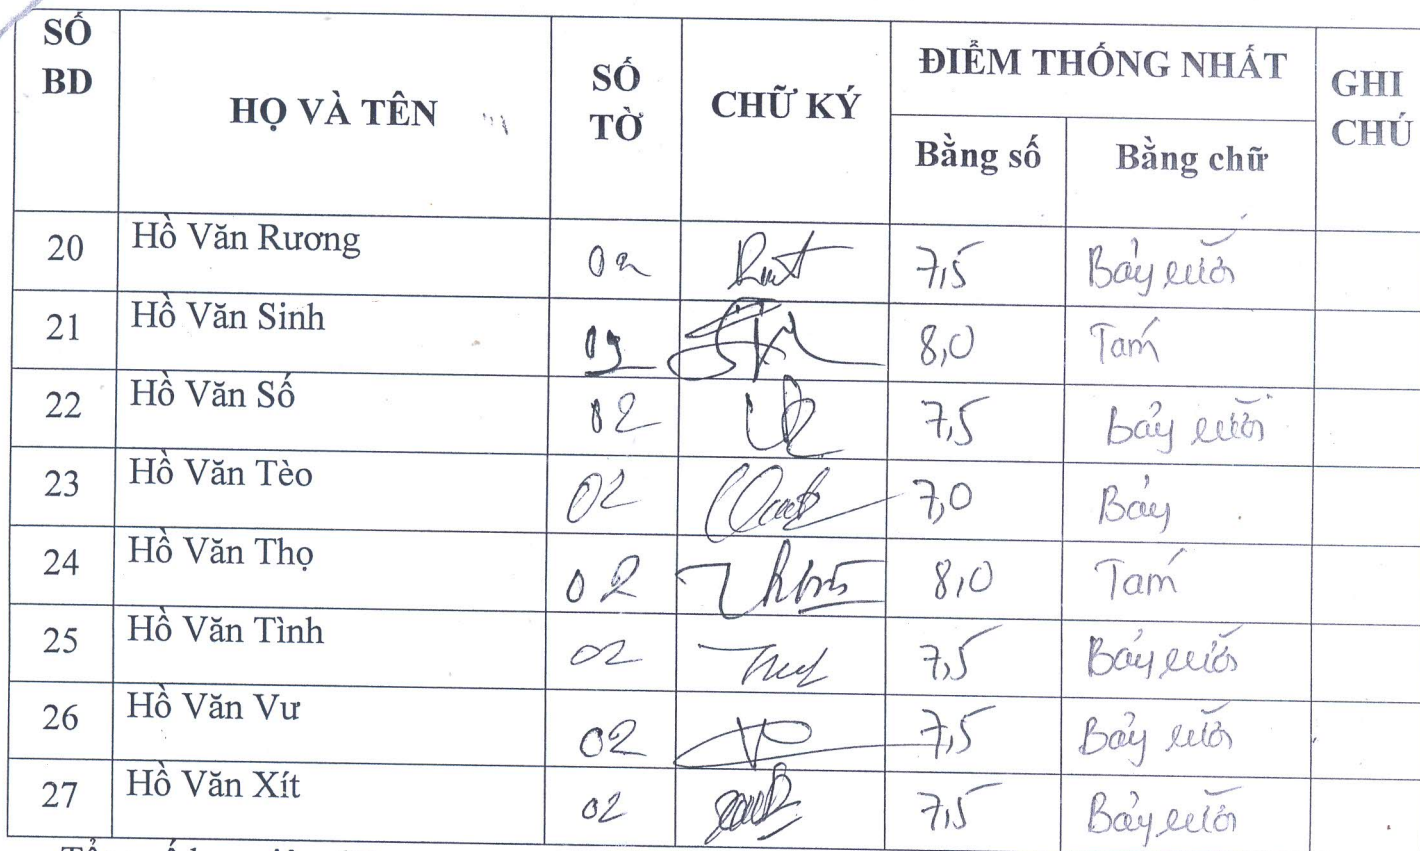 SỐ BD HỌ VÀ TÊN SỐ TỜ CHỮ KÝ ĐIỂM THỐNG NHẤT GHI CHÚ
Bằng số Bằng chữ
20 Hồ Văn Rương 02 7,5 Bảy rưỡi
21 Hồ Văn Sinh 8,0 Tám
22 Hồ Văn Số 02 7,5 Bảy rưỡi
23 Hồ Văn Tèo 02 7,0 Bảy
24 Hồ Văn Thọ 02 8,0 Tám
25 Hồ Văn Tình 02 7,5 Bảy rưỡi
26 Hồ Văn Vư 02 7,5 Bảy rưỡi
27 Hồ Văn Xít 02 7,5 Bảy rưỡi